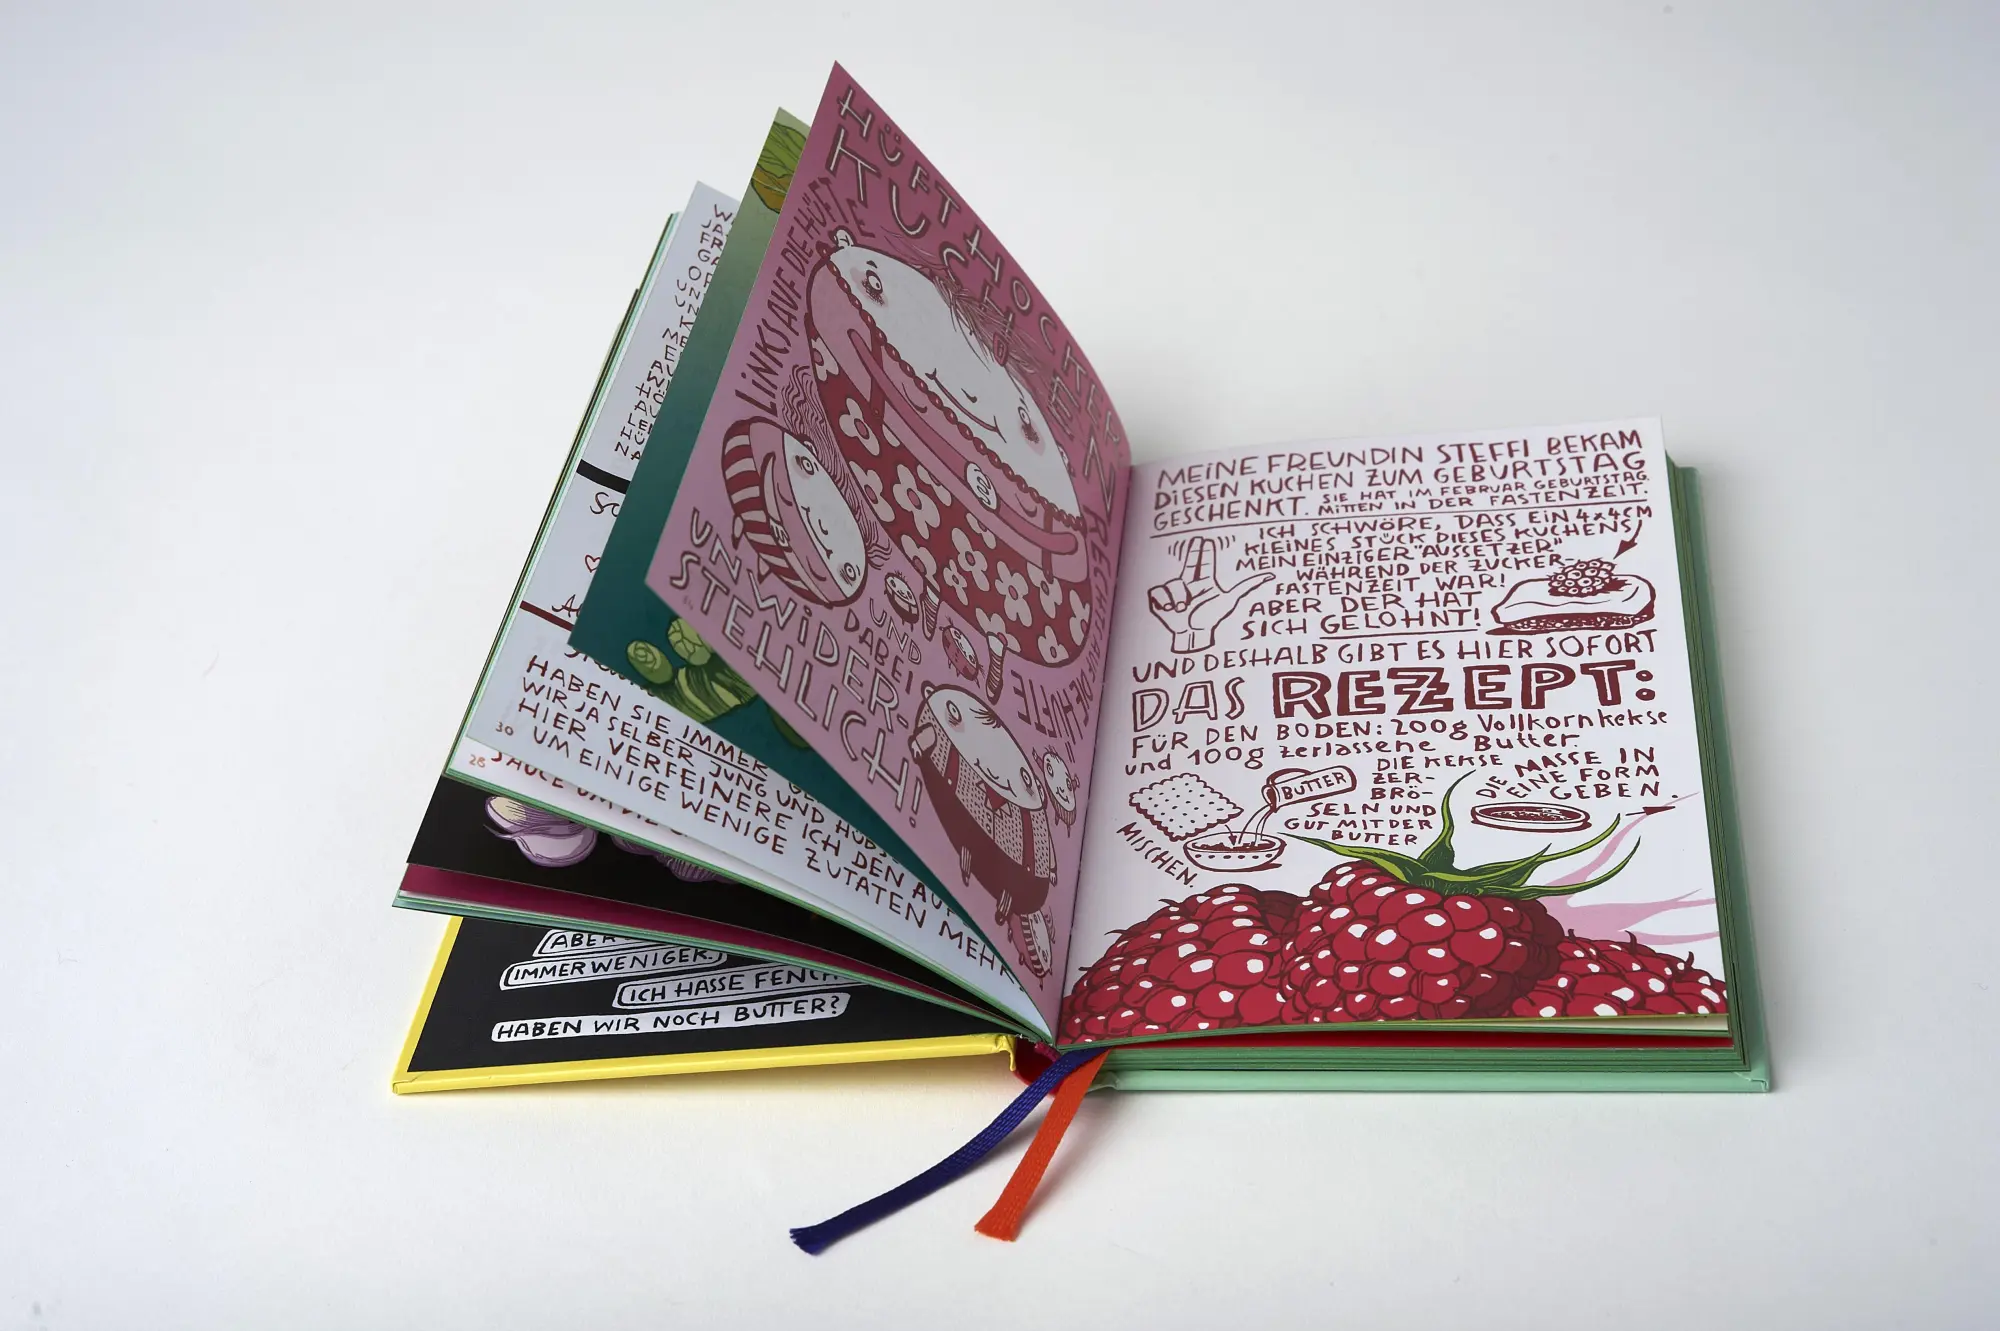 HÜFTHOCKER
KUCHEN
LINKS AUF DIE HÜFTE
RECHTS AUF DIE HÜFTE
UND
DABEI
UNWIDER-
STEHLICH!
MEINE FREUNDIN STEFFI BEKAM
DIESEN KUCHEN ZUM GEBURTSTAG
GESCHENKT. SIE HAT IM FEBRUAR GEBURTSTAG.
MITTEN IN DER FASTENZEIT.
ICH SCHWÖRE, DASS EIN 4x4CM
KLEINES STÜCK DIESES KUCHENS
MEIN EINZIGER "AUSSETZER"
WÄHREND DER ZUCKER-
FASTENZEIT WAR!
ABER DER HAT
SICH GELOHNT!
UND DESHALB GIBT ES HIER SOFORT
DAS REZEPT:
FÜR DEN BODEN: 200g Vollkornkekse
und 100g zerlassene Butter.
DIE KEKSE
ZER-
BRÖ-
SELN UND
GUT MIT DER
BUTTER
MISCHEN.
BUTTER
DIE MASSE IN
EINE FORM
GEBEN.
HABEN SIE IMMER
WIR JA SELBER JUNG UND HÜBSC
HIER VERFEINERE ICH DEN AUF
UM EINIGE WENIGE ZUTATEN MEHR
30
28
SAUCE UM DIE
ABER
IMMER WENIGER.
ICH HASSE FENCH
HABEN WIR NOCH BUTTER?